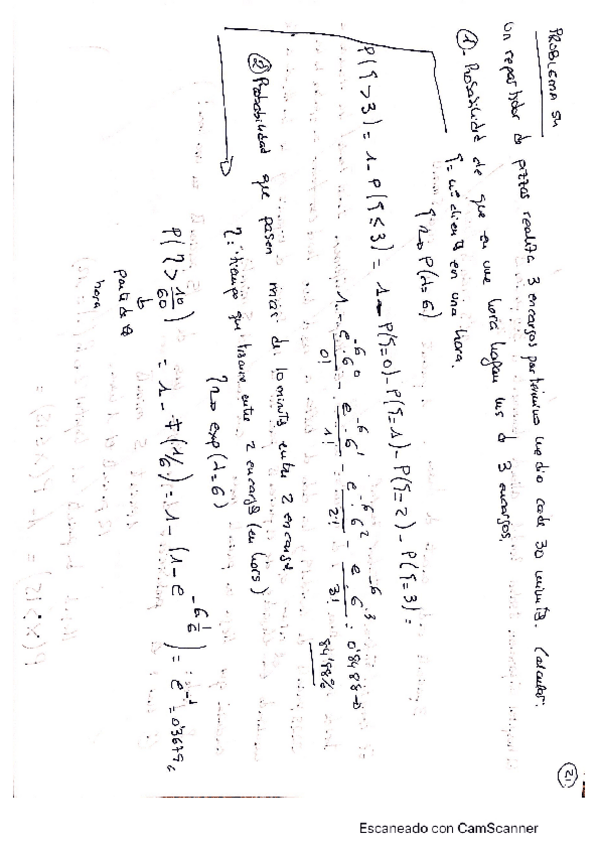 PROBLEMA 54
Un repartidor de pizzas realiza 3 encargos por termino medio cada 30 minutos. Calcular:
① - Probabilidad de que en una hora hagan más de 3 encargos.
ξ = nº clientes en una hora.
ξ → P(λ=6)
P(ξ > 3) = 1 - P(ξ ≤ 3) = 1 - P(ξ=0) - P(ξ=1) - P(ξ=2) - P(ξ=3) =
1 - e^-6 · 6^0 / 0! - e^-6 · 6^1 / 1! - e^-6 6^2 / 2! - e^-6 · 6^3 / 3! = 0'8488 →
84'88%
② Probabilidad que pasen más de 10 minutos entre 2 encargos.
η = tiempo que transcurre entre 2 encargos (en horas)
η → exp(λ=6)
P(η > 10/60) = 1 - F(1/6) = 1 - (1 - e^-6 1/6) = e^-1 = 0'3679
parte de
hora
21
Escaneado con CamScanner